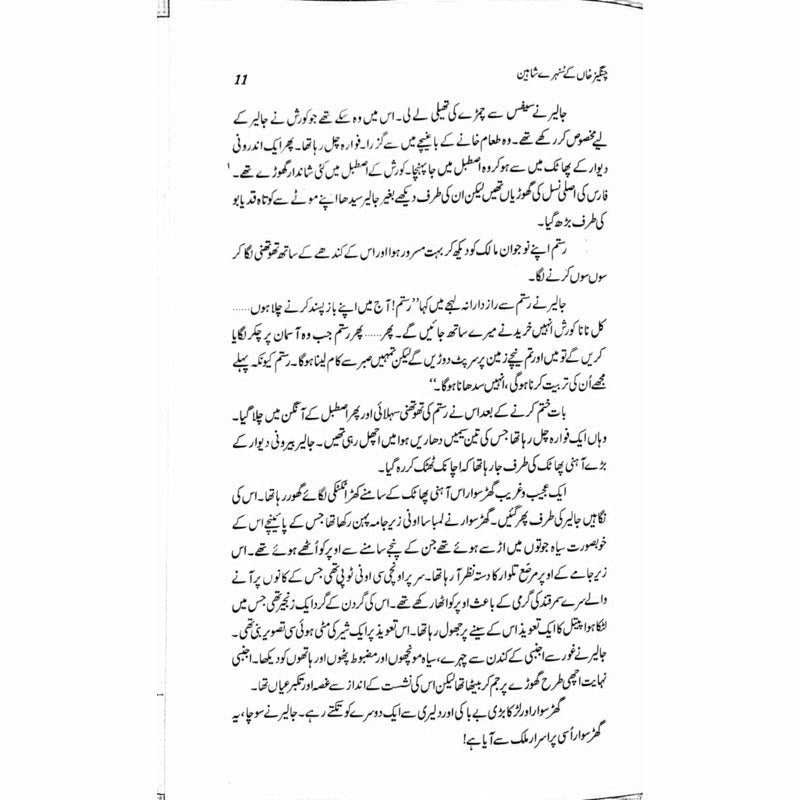 چنگیز خاں کے سنہرے شاہین
11
جالیر نے سیفس سے چمڑے کی تھیلی لے لی۔ اس میں وہ سکے تھے جو کورش نے جالیر کے
لیے مخصوص کر رکھے تھے۔ وہ طعام خانے کے باغیچے میں سے گزرا۔ فوارہ چل رہا تھا۔ پھر ایک اندرونی
دیوار کے پھاٹک میں سے ہو کر وہ اصطبل میں جا پہنچا۔ کورش کے اصطبل میں کئی شاندار گھوڑے تھے۔
فارس کی اصلی نسل کی گھوڑیاں تھیں لیکن ان کی طرف دیکھے بغیر جالیر سیدھا اپنے موٹے سے کوتاہ قد یابو
کی طرف بڑھ گیا۔
رستم اپنے نوجوان مالک کو دیکھ کر بہت مسرور ہوا اور اس کے کندھے کے ساتھ تھوتھنی لگا کر
سوں سوں کرنے لگا۔
جالیر نے رستم سے رازدارانہ لہجے میں کہا ”رستم! آج میں اپنے باز پسند کرنے چلا ہوں......
کل نانا کورش انہیں خریدنے میرے ساتھ جائیں گے۔ پھر...... پھر رستم جب وہ آسمان پر چکر لگایا
کریں گے تو میں اور تم نیچے زمین پر سرپٹ دوڑیں گے لیکن تمہیں صبر سے کام لینا ہوگا۔ رستم کیونکہ پہلے
مجھے اُن کی تربیت کرنا ہوگی، انہیں سدھانا ہوگا۔“
بات ختم کرنے کے بعد اس نے رستم کی تھوتھنی سہلائی اور پھر اصطبل کے آنگن میں چلا گیا۔
وہاں ایک فوارہ چل رہا تھا جس کی تین سیمیں دھاریں ہوا میں اچھل رہی تھیں۔ جالیر بیرونی دیوار کے
بڑے آہنی پھاٹک کی طرف جا رہا تھا کہ اچانک ٹھٹک کر رہ گیا۔
ایک عجیب و غریب گھڑ سوار اس آہنی پھاٹک کے سامنے کھڑا ٹکٹکی لگائے گھور رہا تھا۔ اس کی
نگاہیں جالیر کی طرف پھر گئیں۔ گھڑ سوار نے لمبا سا اونی زیر جامہ پہن رکھا تھا جس کے پائینچے اس کے
خوبصورت سیاہ جوتوں میں اڑسے ہوئے تھے جن کے پنجے سامنے سے اوپر کو اُٹھے ہوئے تھے۔ اس
زیر جامے کے اوپر مرصّع تلوار کا دستہ نظر آ رہا تھا۔ سر پر اونچی سی اونی ٹوپی تھی جس کے کانوں پر آنے
والے سرے سمرقند کی گرمی کے باعث اوپر کو اٹھا رکھے تھے۔ اس کی گردن کے گرد ایک زنجیر تھی جس میں
لٹکا ہوا پیتل کا ایک تعویذ اس کے سینے پر جھول رہا تھا۔ اس تعویذ پر ایک شیر کی مٹی ہوئی سی تصویر بنی تھی۔
جالیر نے غور سے اجنبی کے کندن سے چہرے، سیاہ مونچھوں اور مضبوط پٹھوں اور ہاتھوں کو دیکھا۔ اجنبی
نہایت اچھی طرح گھوڑے پر جم کر بیٹھا تھا لیکن اس کی نشست کے انداز سے غصہ اور تکبر عیاں تھا۔
گھڑ سوار اور لڑکا بڑی بے باکی اور دلیری سے ایک دوسرے کو تکتے رہے۔ جالیر نے سوچا، یہ
گھڑ سوار اُسی پراسرار ملک سے آیا ہے!